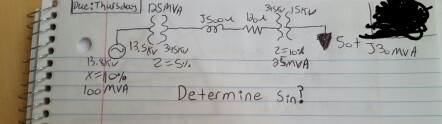 Due: Thursday
125MVA
J500Ω
120Ω
345KV 15KV
50+J30MVA
13.5KV 345KV
Z=10%
13.8KV
Z=5%
25MVA
X=10%
100MVA
Determine Sin?